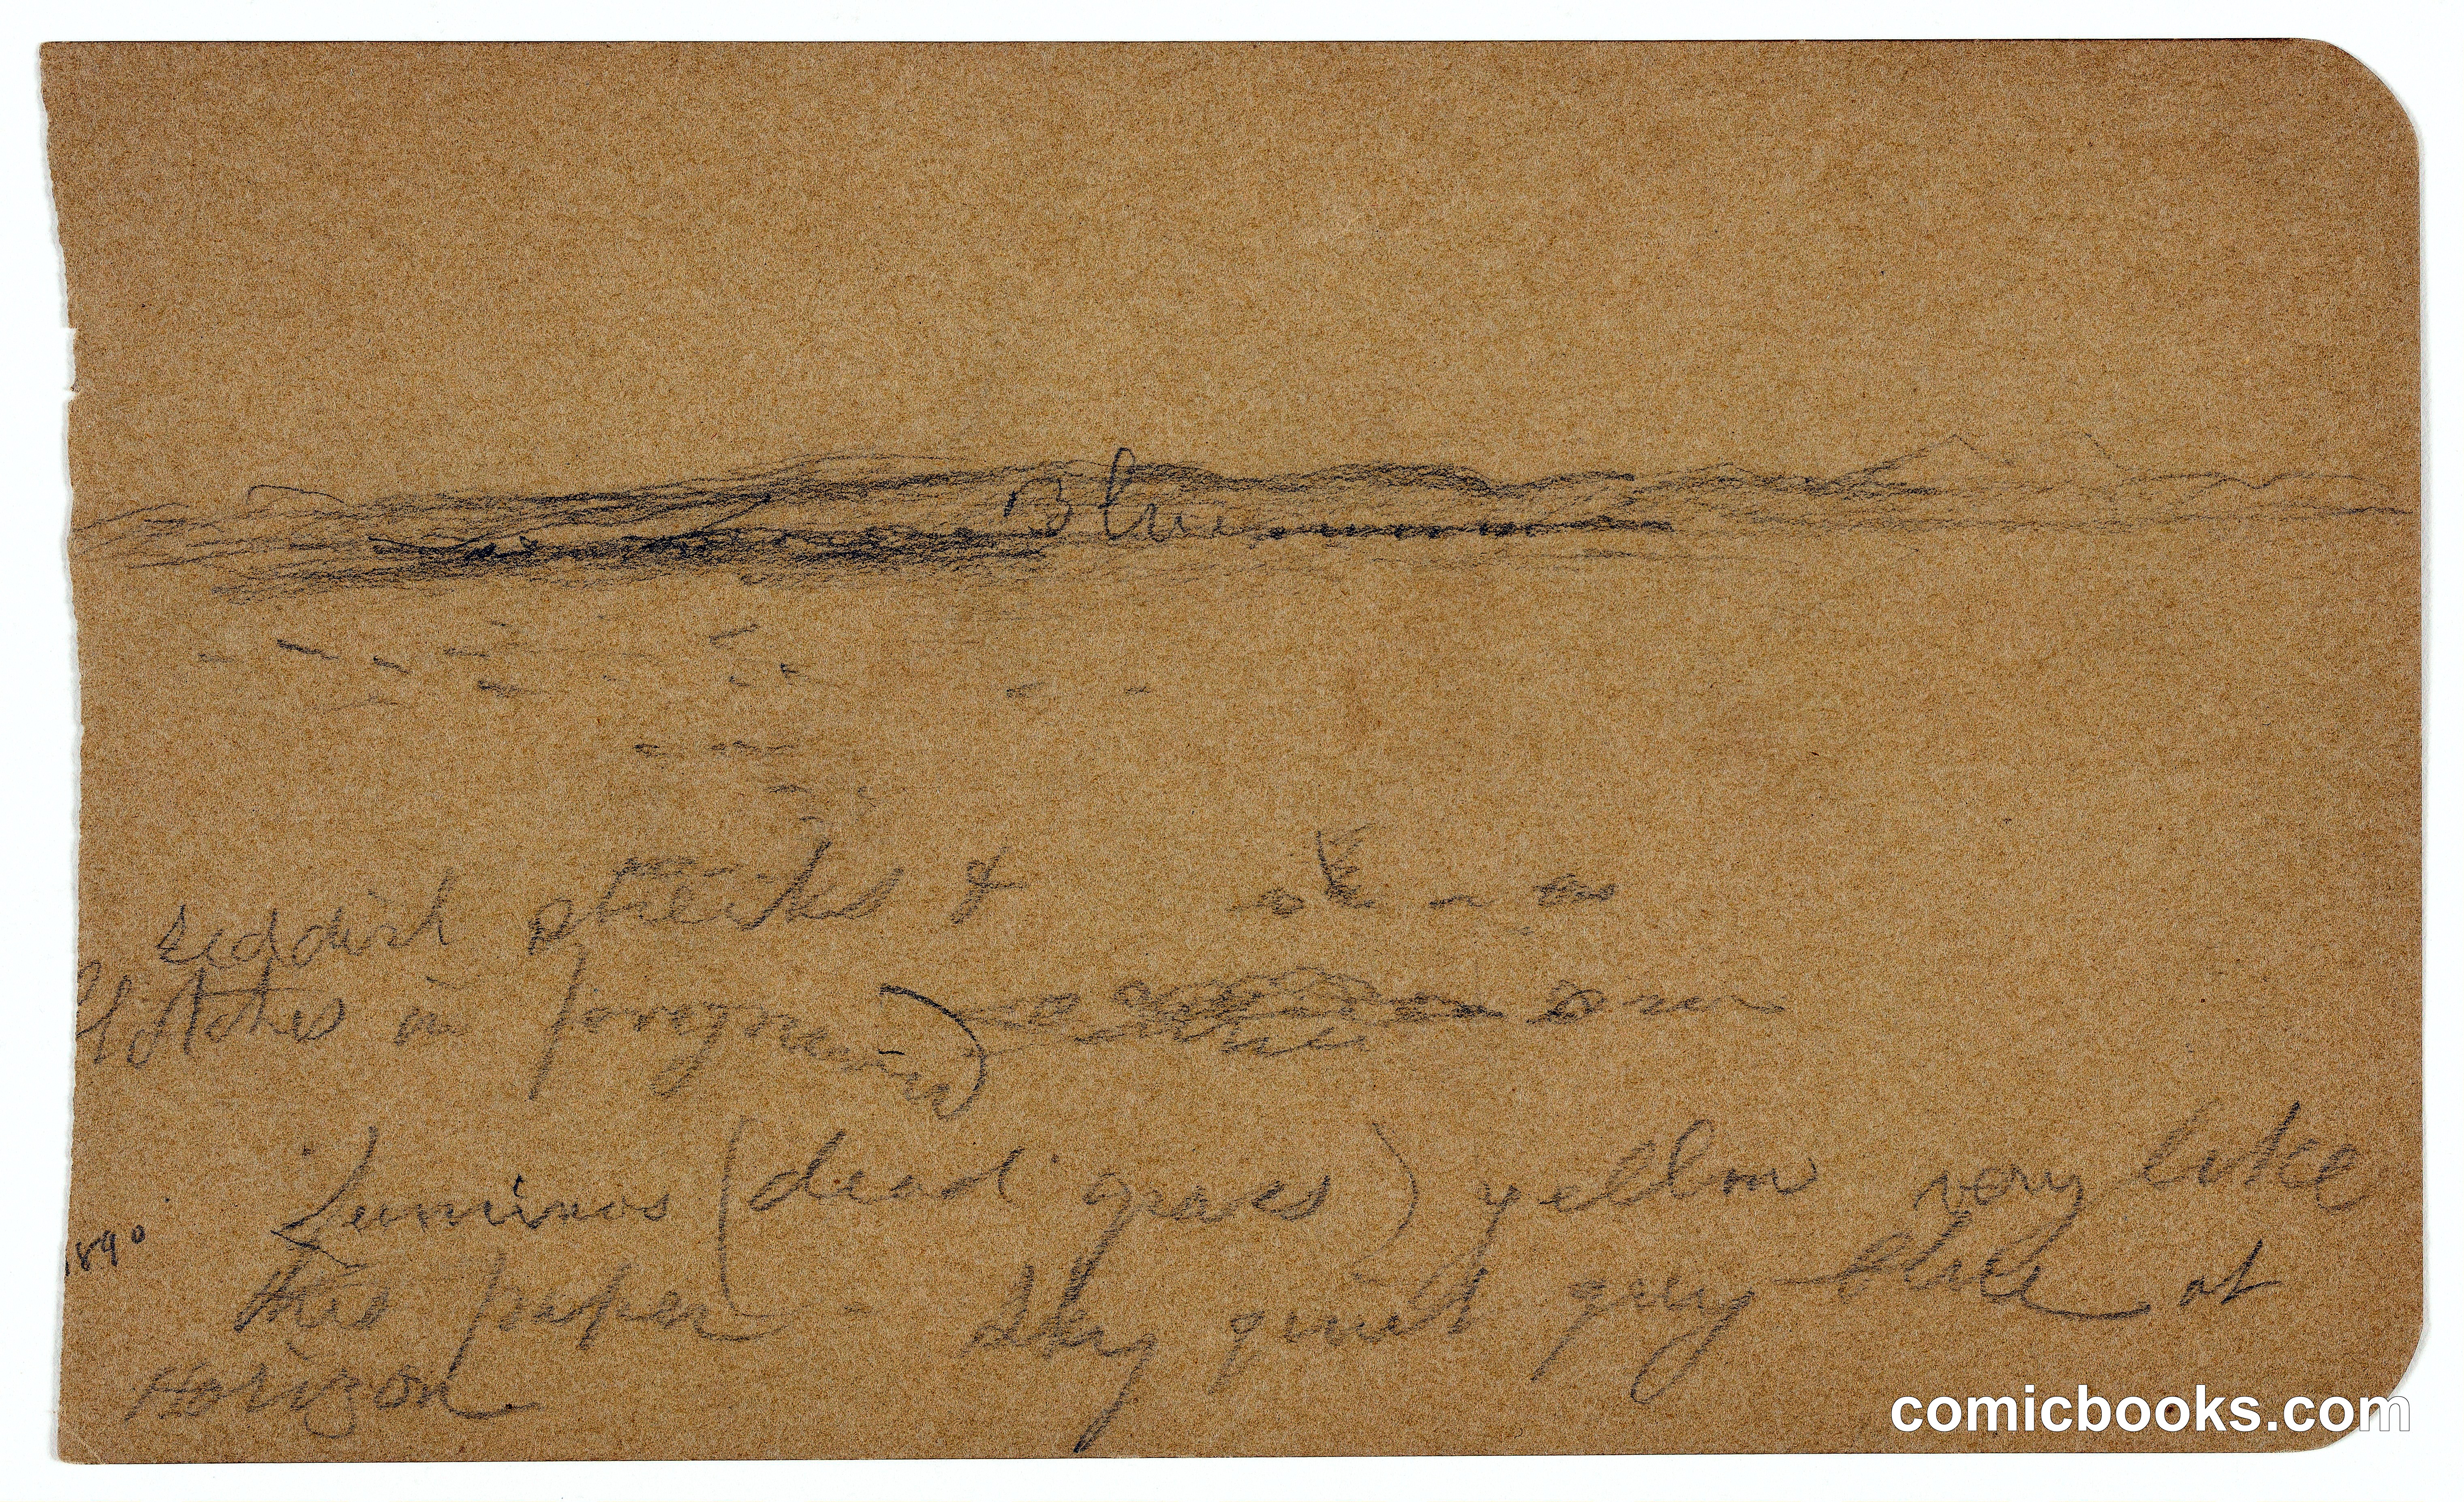 Blue
reddish streaks &
blotches in foreground
Luminos (dead grass) yellow very like
1890
this paper - sky quiet grey blue at
Horizon
comicbooks.com